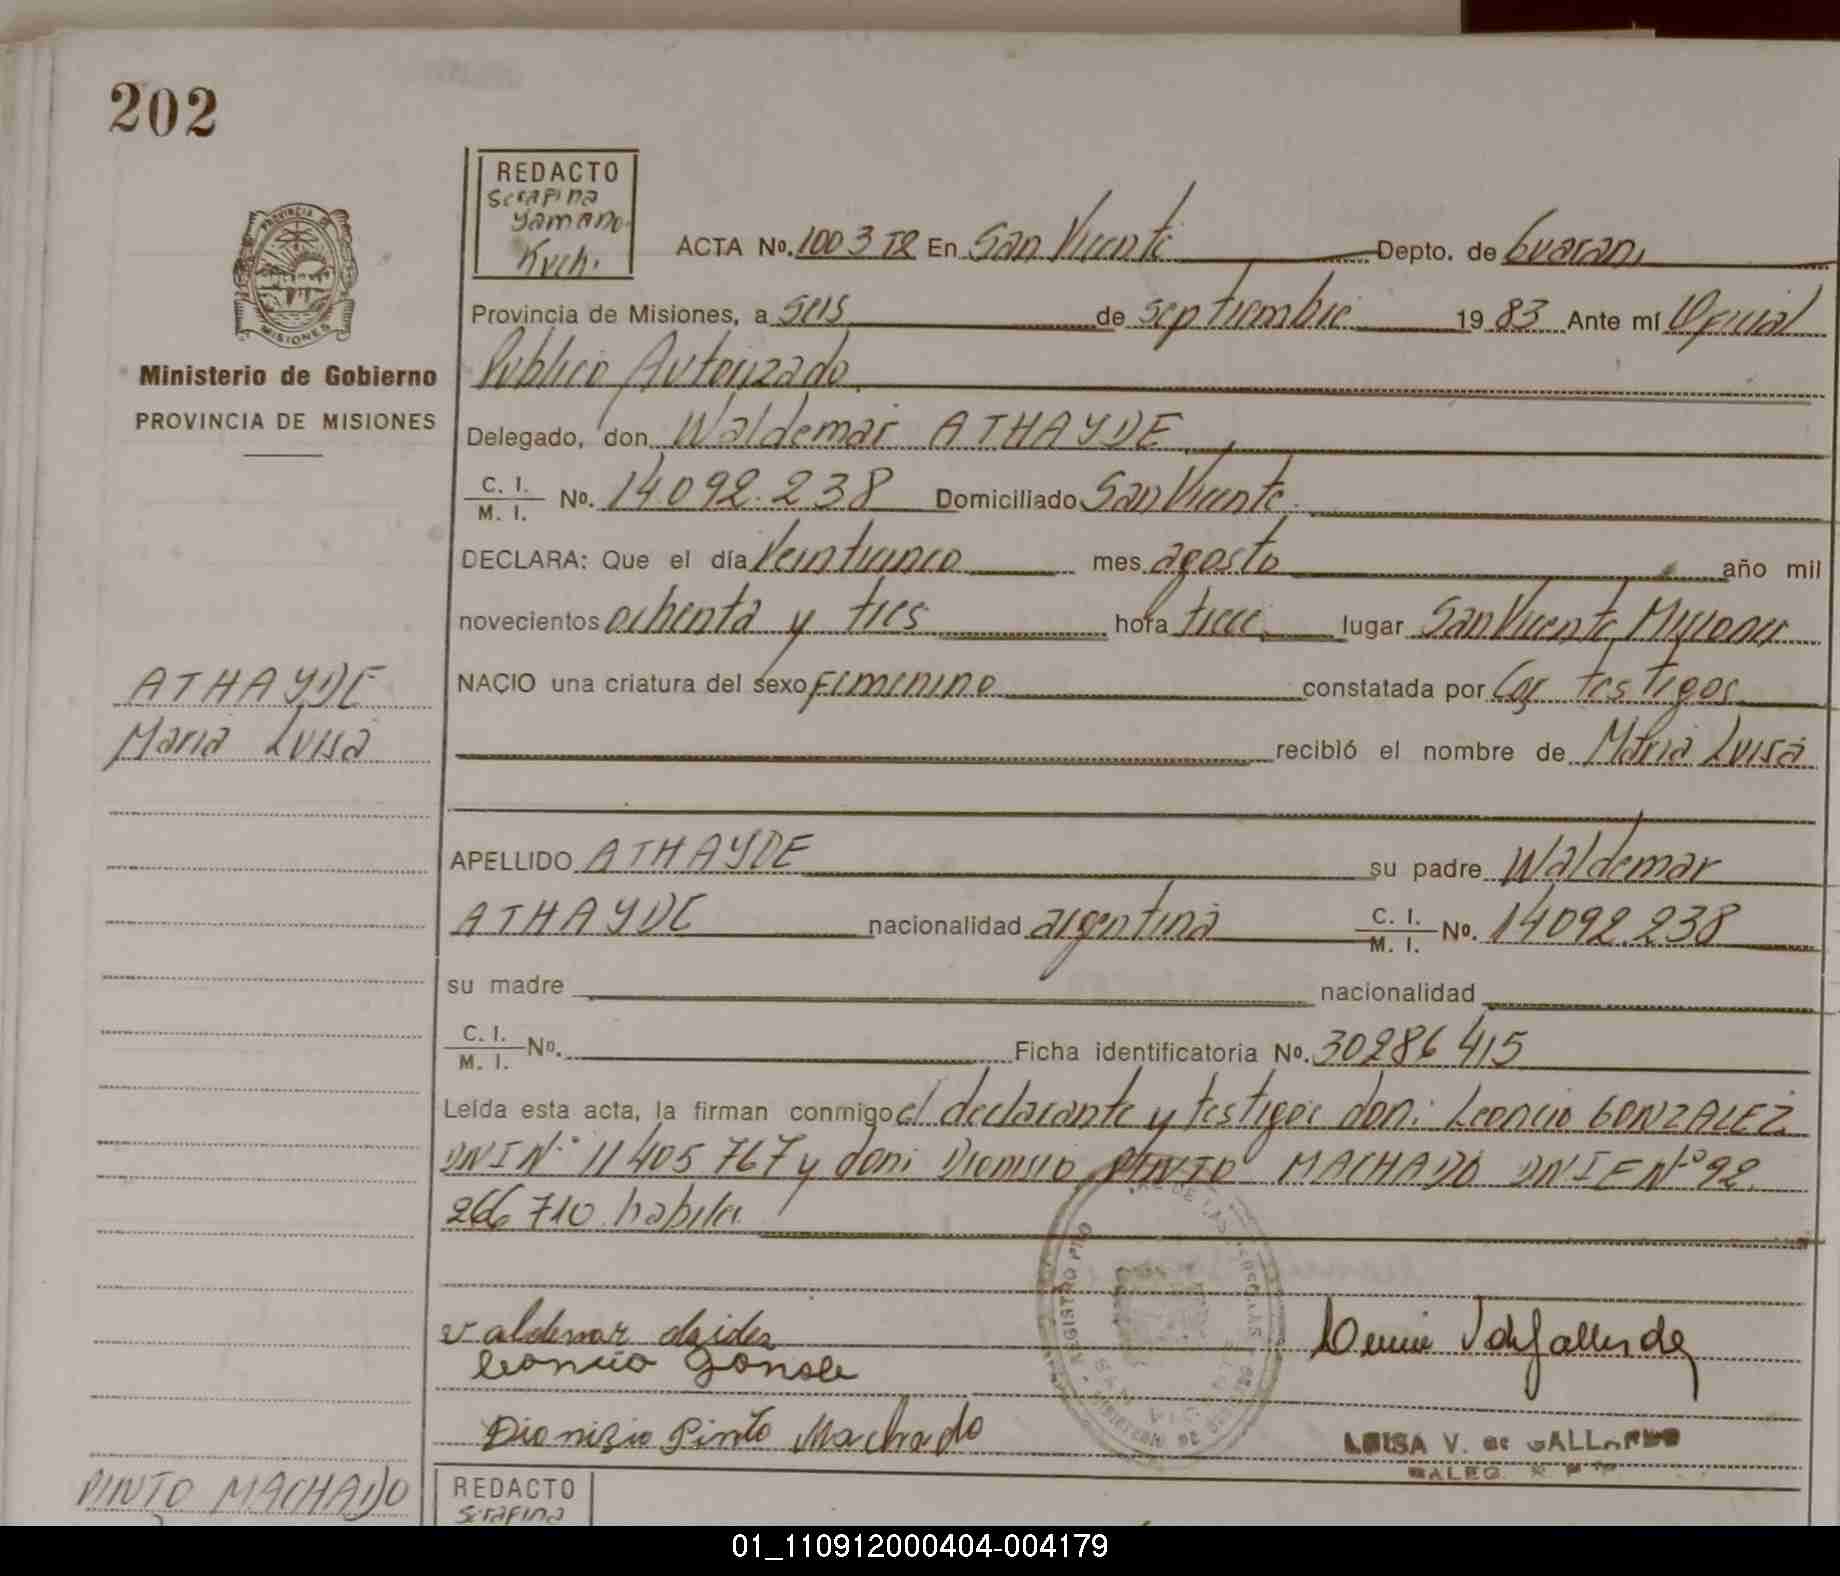 202
REDACTO
Serafina
Yamano
Kuch.
ACTA No. 1003 T2 En San Vicente Depto. de Guarani
PROVINCIA DE
MISIONES
Provincia de Misiones, a seis de septiembre 19 83 Ante mí Oficial
Ministerio de Gobierno
Publico Autorizado
PROVINCIA DE MISIONES
Delegado, don Waldemar ATHAYDE
C. I.
M. I. No. 14092.238 Domiciliado San Vicente
DECLARA: Que el día Veinticinco mes agosto año mil
novecientos ochenta y tres hora trece lugar San Vicente Misiones
ATHAYDE
NACIO una criatura del sexo FEMENINO constatada por los testigos
Maria Luisa
recibió el nombre de Maria Luisa
APELLIDO ATHAYDE su padre Waldemar
ATHAYDE nacionalidad argentina C. I. M. I. No. 14092 238
su madre nacionalidad
C. I. M. I. No. Ficha identificatoria No. 30286 415
Leída esta acta, la firman conmigo el declarante y testigos don: Leoncio GONZALEZ
DNI Nº 11405 767 y don: Dionisio PINTO MACHADO DNIE Nº 92.
266 710 habiles
valdemar
leoncio gonsale
Dionizio Pinto Machado
LUISA V. de GALLARDO
PINTO MACHADO
REDACTO
Serafina
01_110912000404-004179